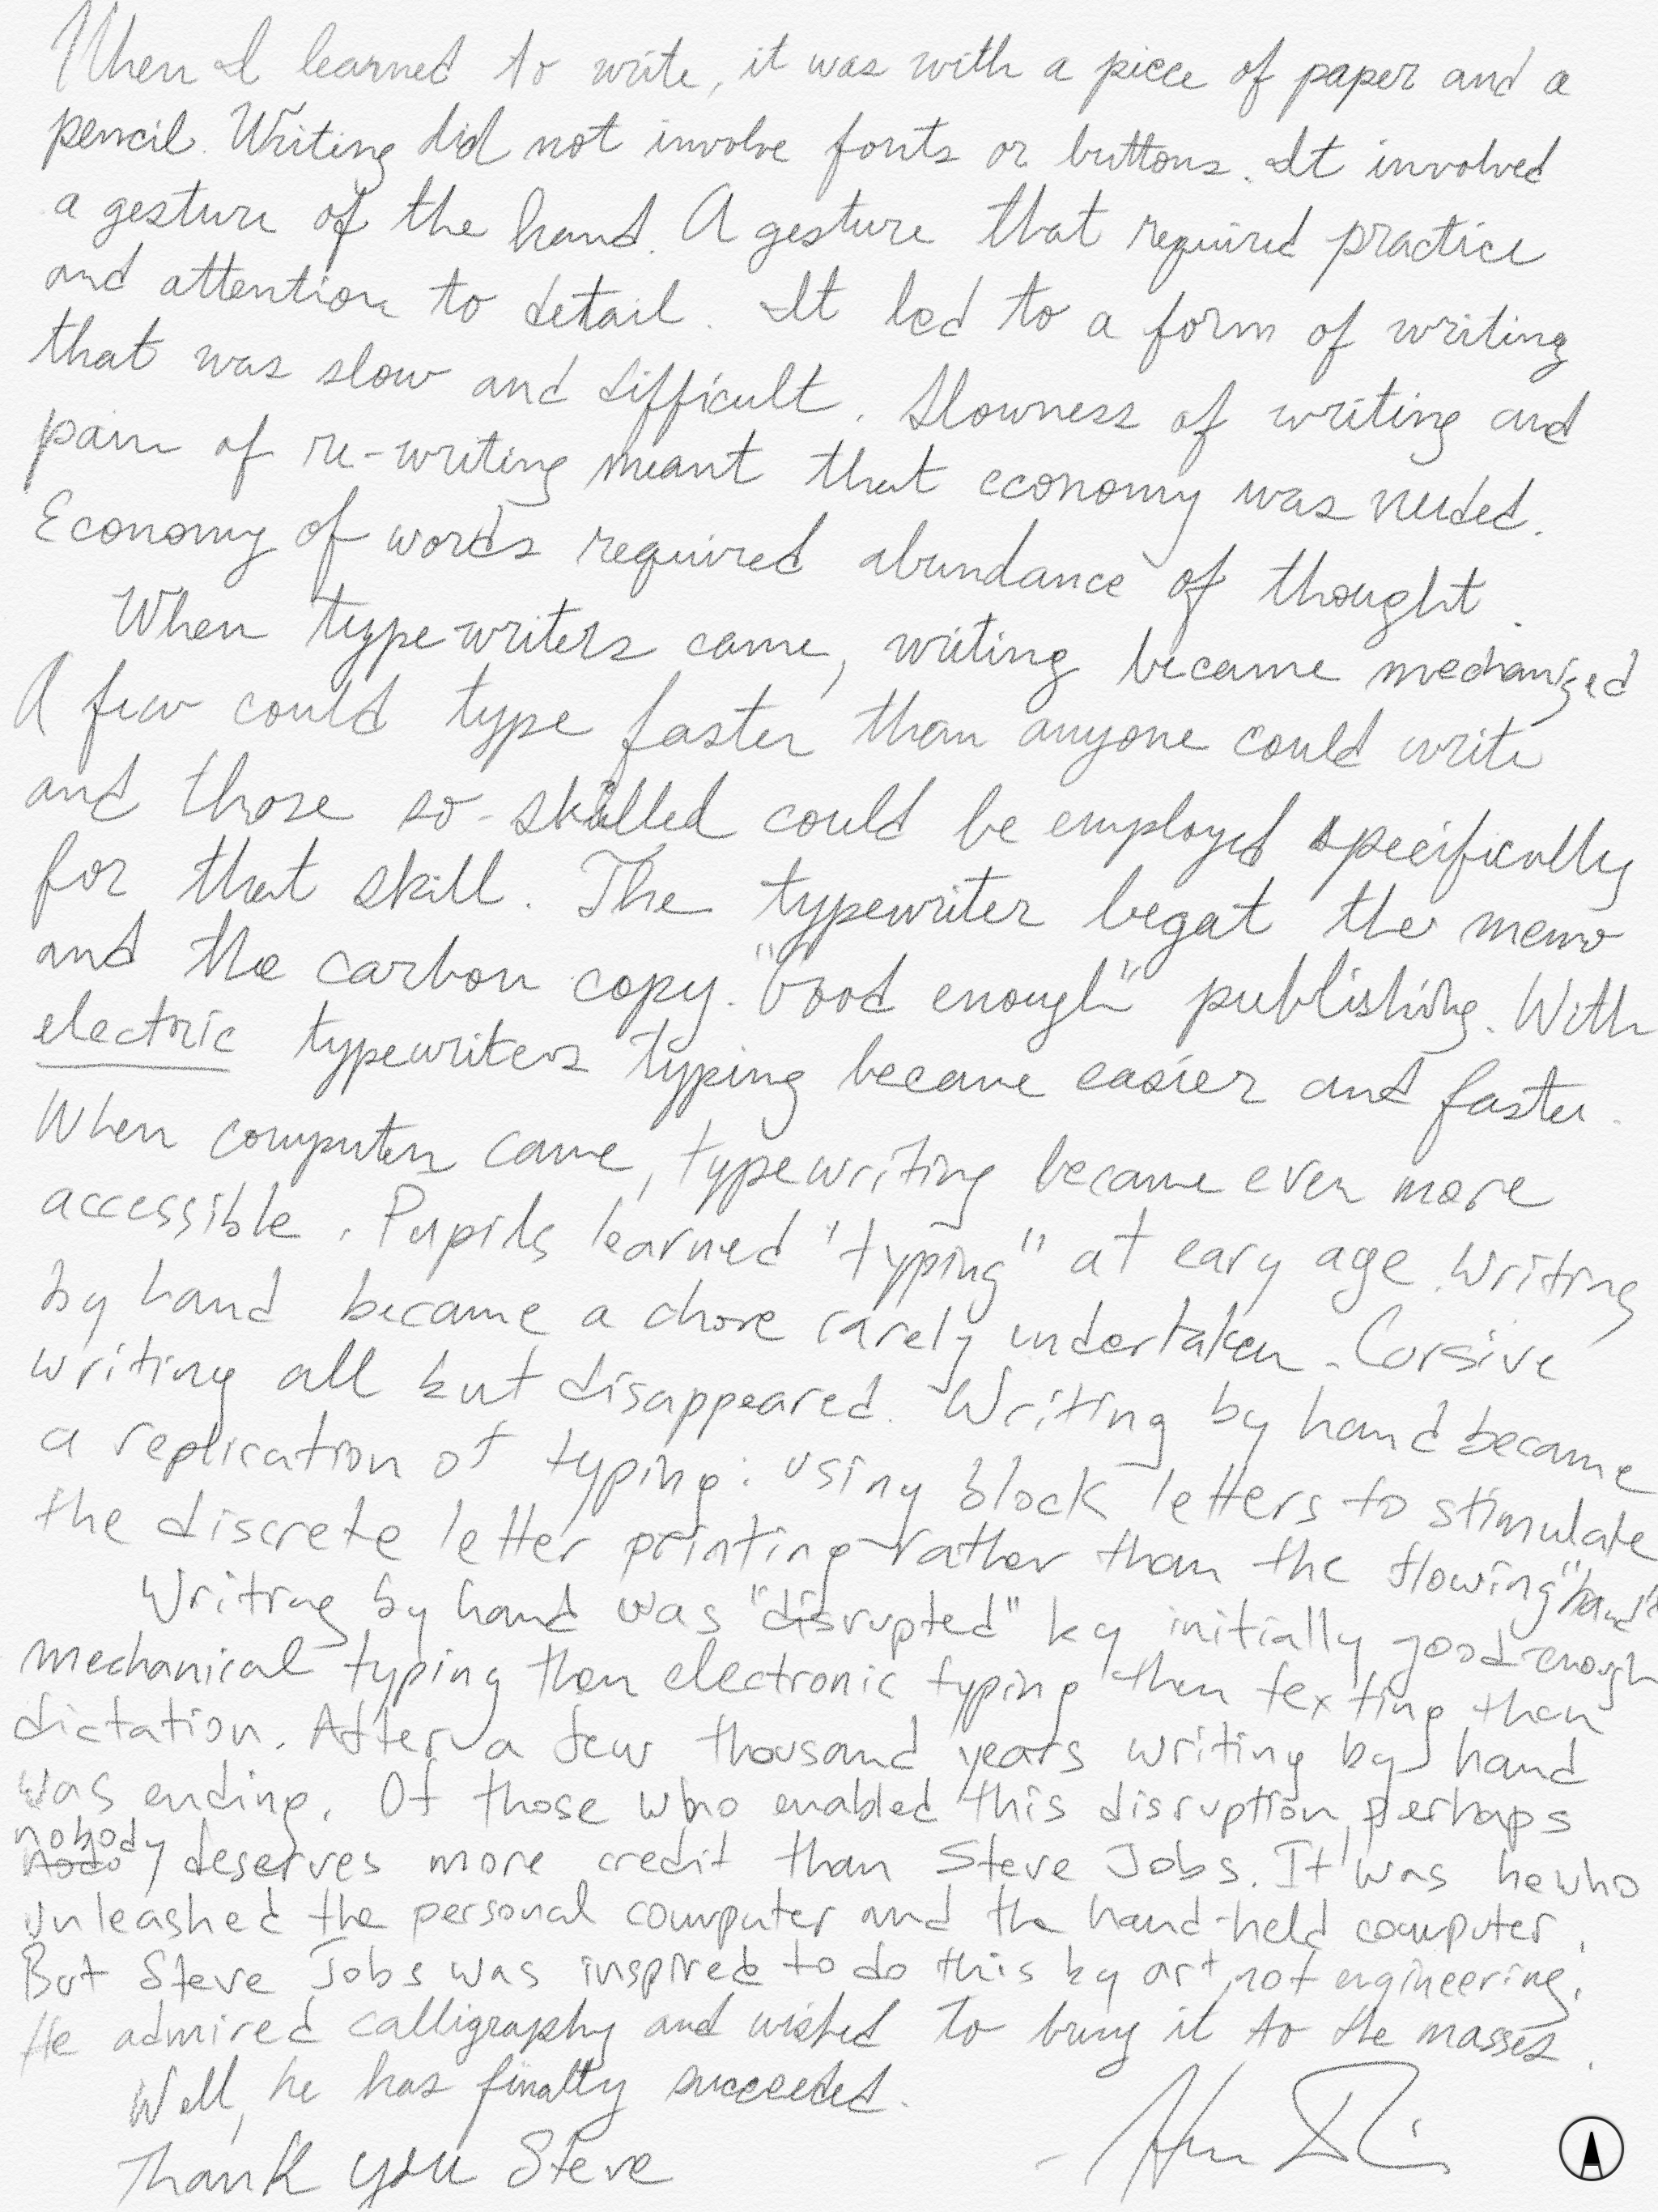 When I learned to write, it was with a piece of paper and a
pencil. Writing did not involve fonts or buttons. It involved
a gesture of the hand. A gesture that required practice
and attention to detail. It led to a form of writing
that was slow and difficult. Slowness of writing and
pain of re-writing meant that economy was needed.
Economy of words required abundance of thought.
When typewriters came, writing became mechanized
A few could type faster than anyone could write
and those so-skilled could be employed specifically
for that skill. The typewriter begat the memo
and the carbon copy. "Good enough" publishing. With
electric typewriters typing became easier and faster.
When computers came, typewriting became even more
accessible. Pupils learned "typing" at eary age. Writing
by hand became a chore rarely undertaken. Corsive
writing all but disappeared. Writing by hand became
a replication of typing: using block letters to stimulate
the discrete letter printing rather than the flowing "hand".
Writing by hand was "disrupted" by initially good enough
mechanical typing then electronic typing then texting then
dictation. After a few thousand years writing by hand
was ending. Of those who enabled this disruption, perhaps
nobody deserves more credit than Steve Jobs. It was he who
unleashed the personal computer and the hand-held computer.
But Steve Jobs was inspired to do this by art, not engineering.
He admired calligraphy and wished to bring it to the masses.
Well, he has finally succeeded.
Thank you Steve